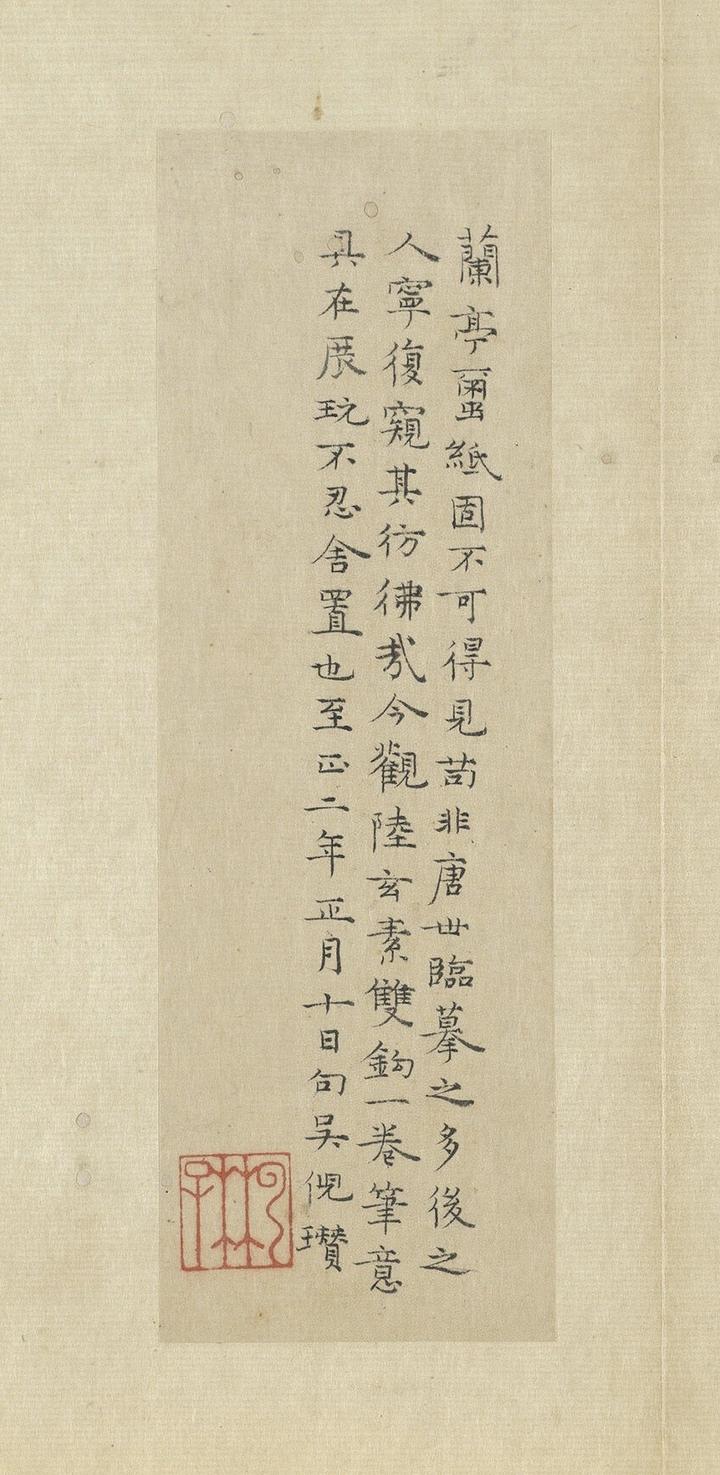 蘭亭蠒紙固不可得見苟非唐世臨摹之多後之
人寧復窺其彷彿哉今觀陸玄素雙鈎一卷筆意
具在展玩不忍舍置也至正二年正月十日句吳倪瓚
云林子